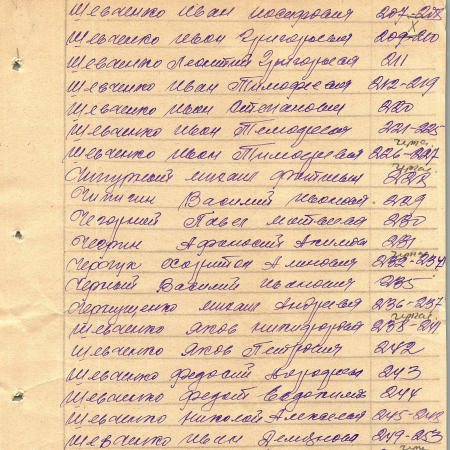 Шевченко Иван Иосифович 207-208
Шевченко Иван Григорьевич 209-210
Шевченко Леонтий Григорьевич 211
Шевченко Иван Тимофеевич 212-219
Шевченко Иван Степанович 220
Шевченко Иван Тимофеевич 221-225
Шевченко Иван Тимофеевич 226-227
Михаил 228
Чипигин Василий 229
Чегорний Павел Матвеевич 230
Чедрин Афанасий 231
Харитон 232-234
Черный Василий Иванович 235
Михаил Андреевич 236-237
Шевченко Яков Никифорович 238-241
Шевченко Яков Петрович 242
Шевченко Федосий 243
Шевченко Федот Евдокимович 244
Шевченко Николай Алексеевич 245-248
Шевченко Иван Демьянович 249-253